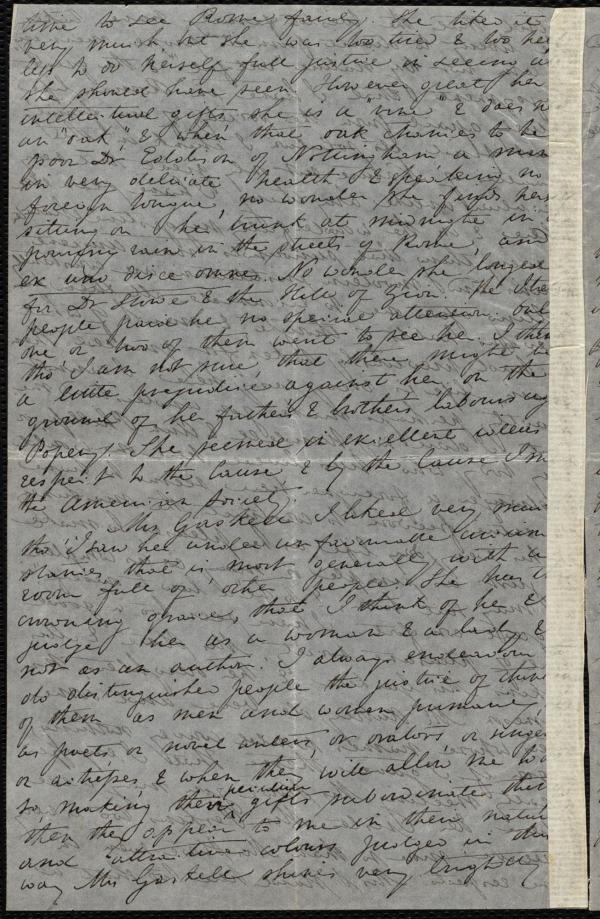 time to see Rome fairly. She liked it
very much but she was too tired & too he
less to do herself full justice in seeing a
she should have seen. However great her
intellectual gifts she is a "vine" & does n
an "oak," & when that oak chances to be
poor Dr. Eddison of Nottingham a man
in very delicate health & speaking no
foreign tongue, no wonder she finds hers
sitting on her trunk at midnight in a
pouring rain in the streets of Rome, and
ex uno disce omnes. No wonder she longed
for Dr Stowe & the Hills of Zion. The
people paid her no special attention but
one or two of them went to see her. I then
tho' I am not sure, that there might be
a little prejudice against her on the
ground of her father's & brother's labours ag
Popery. She seemed in excellent
respect to the Cause & by the Cause I m
the American Society.
Mrs Gaskell I liked very mu
tho' I saw her under unfavourable circum
stances, that is most generally with a
room full of other people. She has a
crowning grace, that I think of her &
judge her as a woman & a lady &
not as an author. I always endeavour
do distinguished people the justice of thin
of them as men and women primarily
as poets or novel writers, or orators or singe
or actresses & when they will allow me to
so making their peculiar gifts subordinate
then they appear to me in their natu
and attractive colours. Judged in this
way Mrs Gaskell shines very brightly